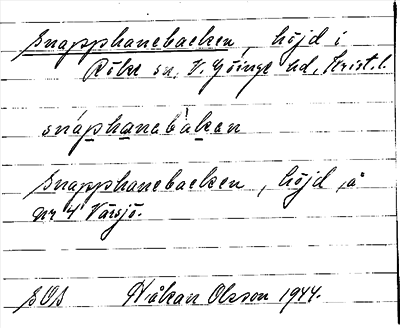 Snapphanebacken, höjd i
Röke sn, V. Göinge hd, Krist. l.
snáphanebàkan
Snapphanebacken, höjd, å
nr 4 Värsjö.
SOS Håkan Olsson 1944.